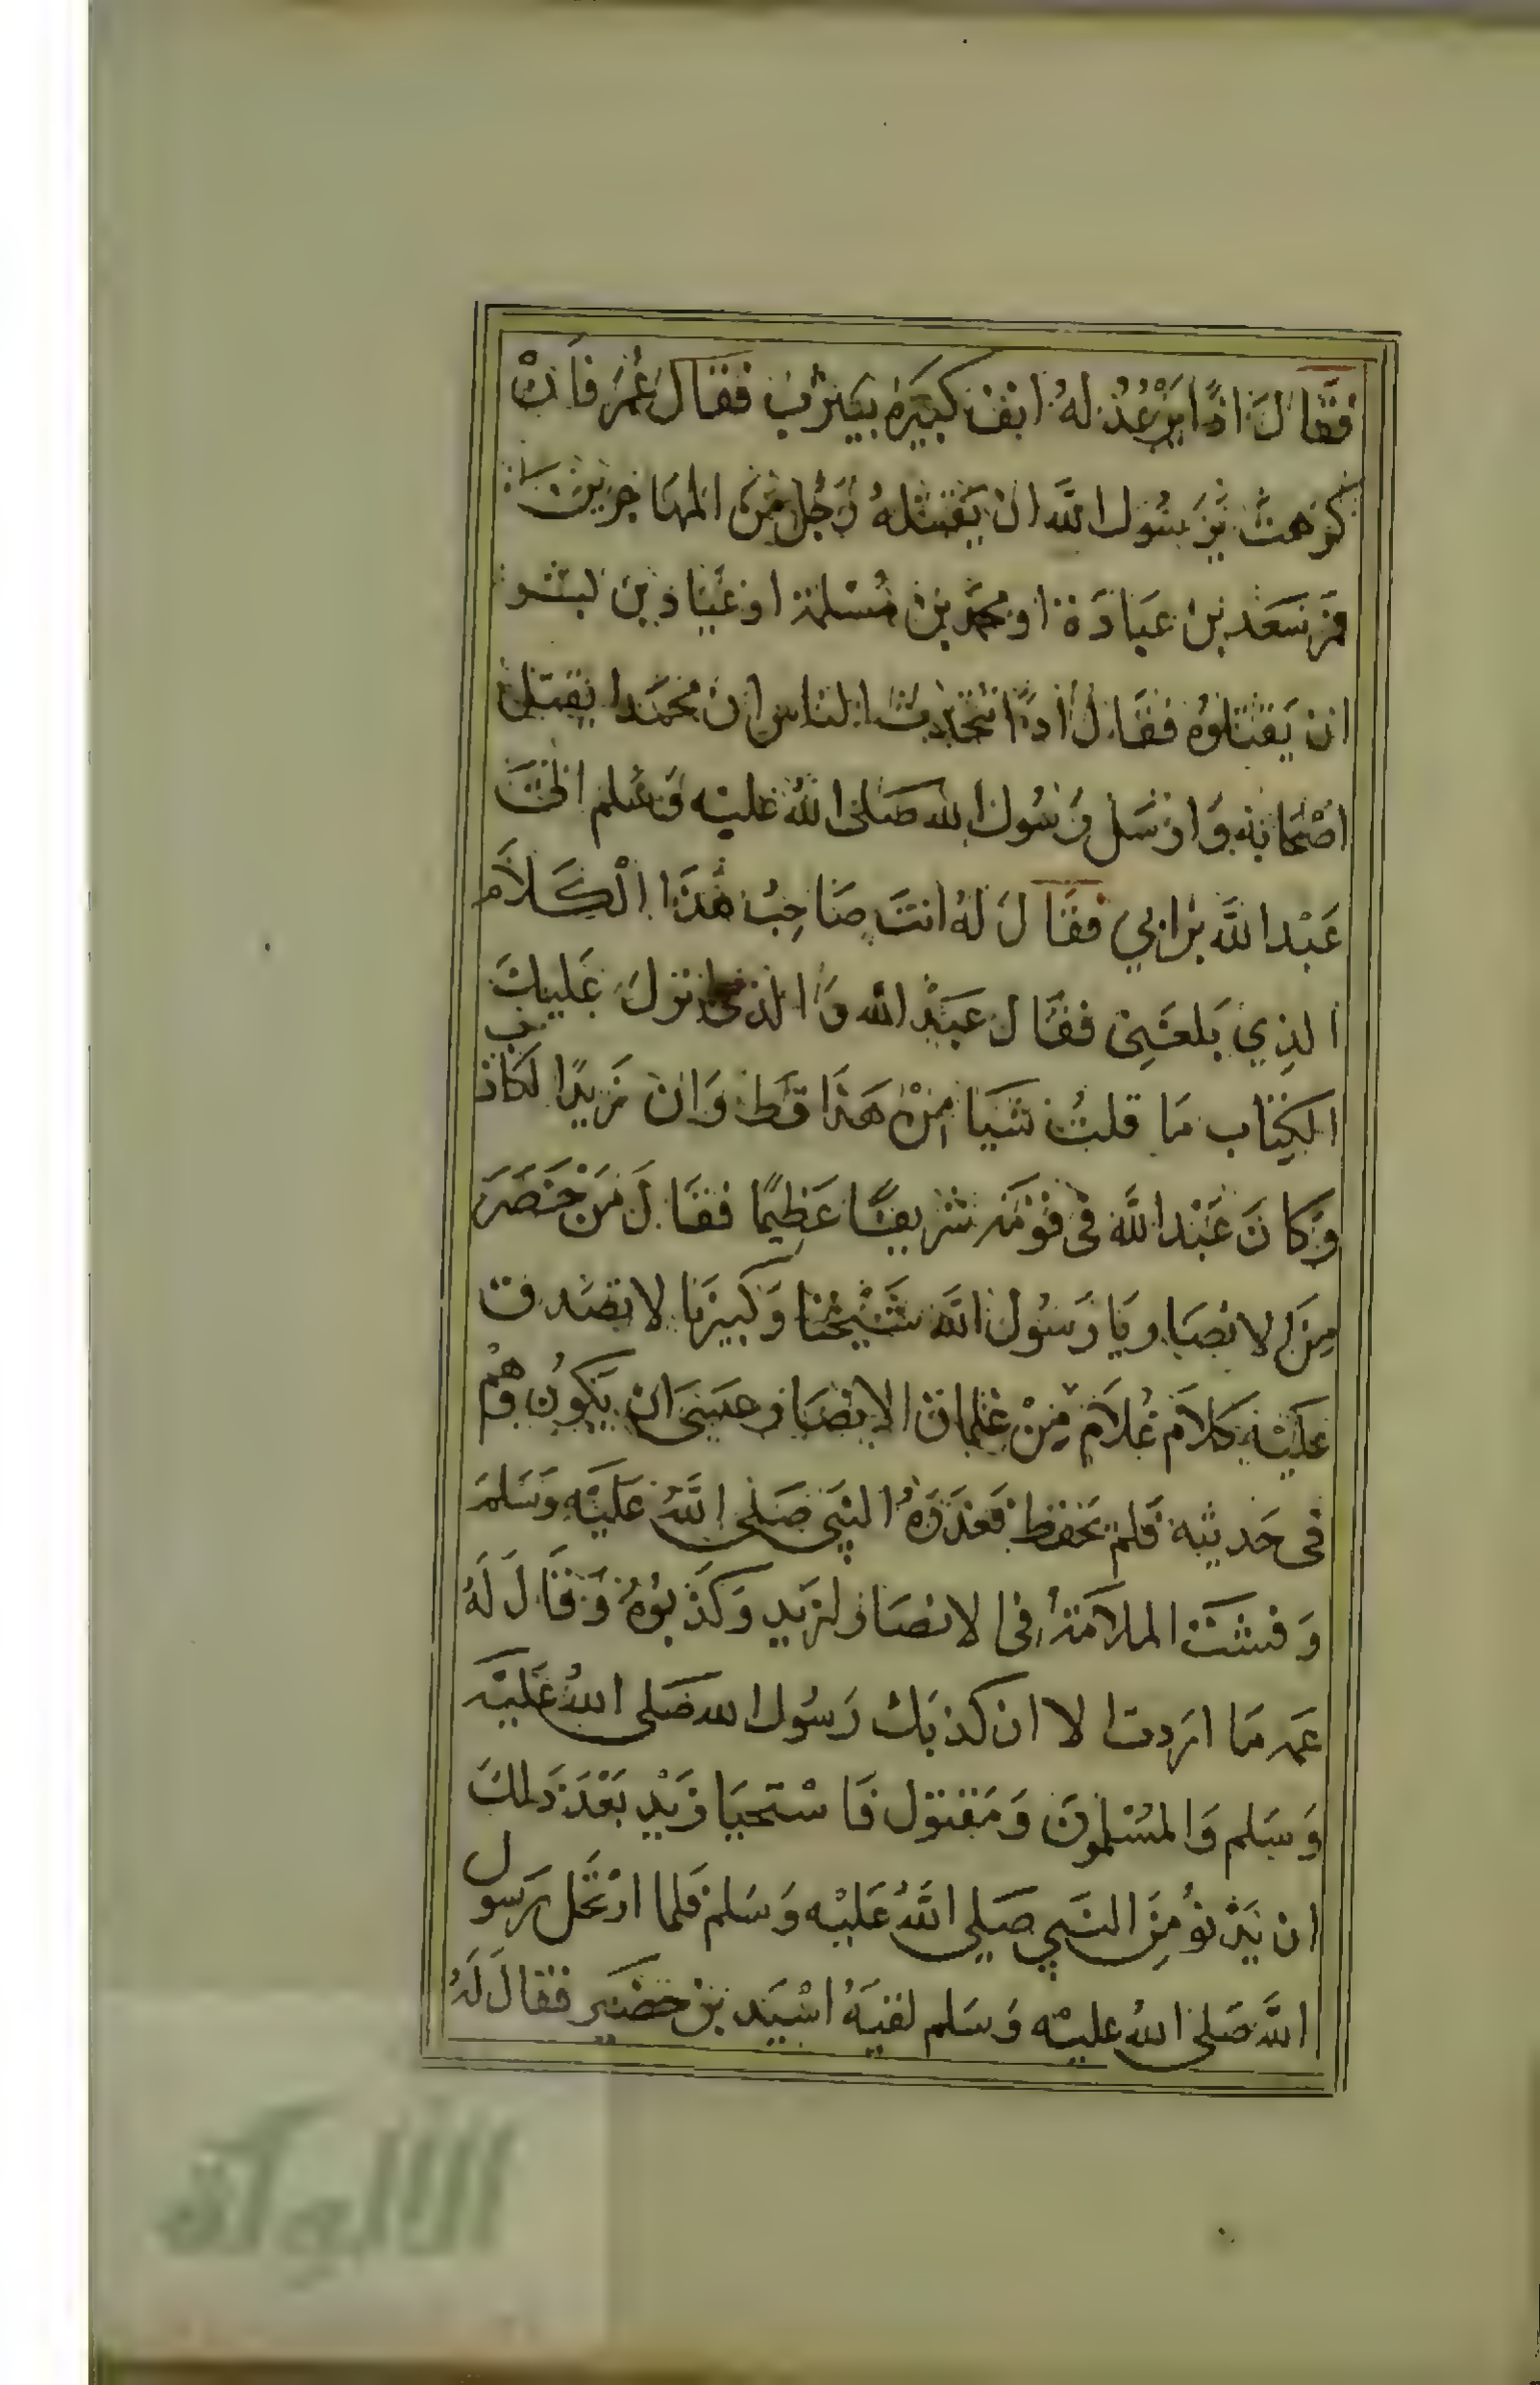 فقال اذًا يرعد له انف كبيرة بيثرب فقال عمر فان
كرهت يرسول الله ان يقتله رجل من المهاجرين
فمر سعد بن عبادة او محمد بن مسلمة او عباد بن بشر
ان يقتلوه فقال اذًا يتحدث الناس ان محمدا يقتل
اصحابه وارسل رسول الله صلى الله عليه وسلم الى
عبد الله بن ابي فقال له انت صاحب هذا الكلام
الذي بلغني فقال عبد الله والذي انزل عليك
الكتاب ما قلت شيا من هذا قط وان زيدًا لكاذب
وكان عبد الله في قومه شريفًا عظيمًا فقال من حضر
من لانصار يا رسول الله شيخنا وكبيرنا لا تصدق
عليه كلام غلام من غلمان الانصار عسى ان يكون وهم
في حديثه فلم يحفظ فعذره النبي صلى الله عليه وسلم
وفشت الملامة في لانصار لزيد وكذبوه وقال له
عمه ما اردت لا ان كذبك رسول الله صلى الله عليه
وسلم والمسلمون ومقتول فاستحيا زيد بعد ذلك
ان يدنو من النبي صلي الله عليه وسلم فلما ارتحل رسول
الله صلى الله عليه وسلم لقيه اسيد بن حضير فقال له
الألوكة